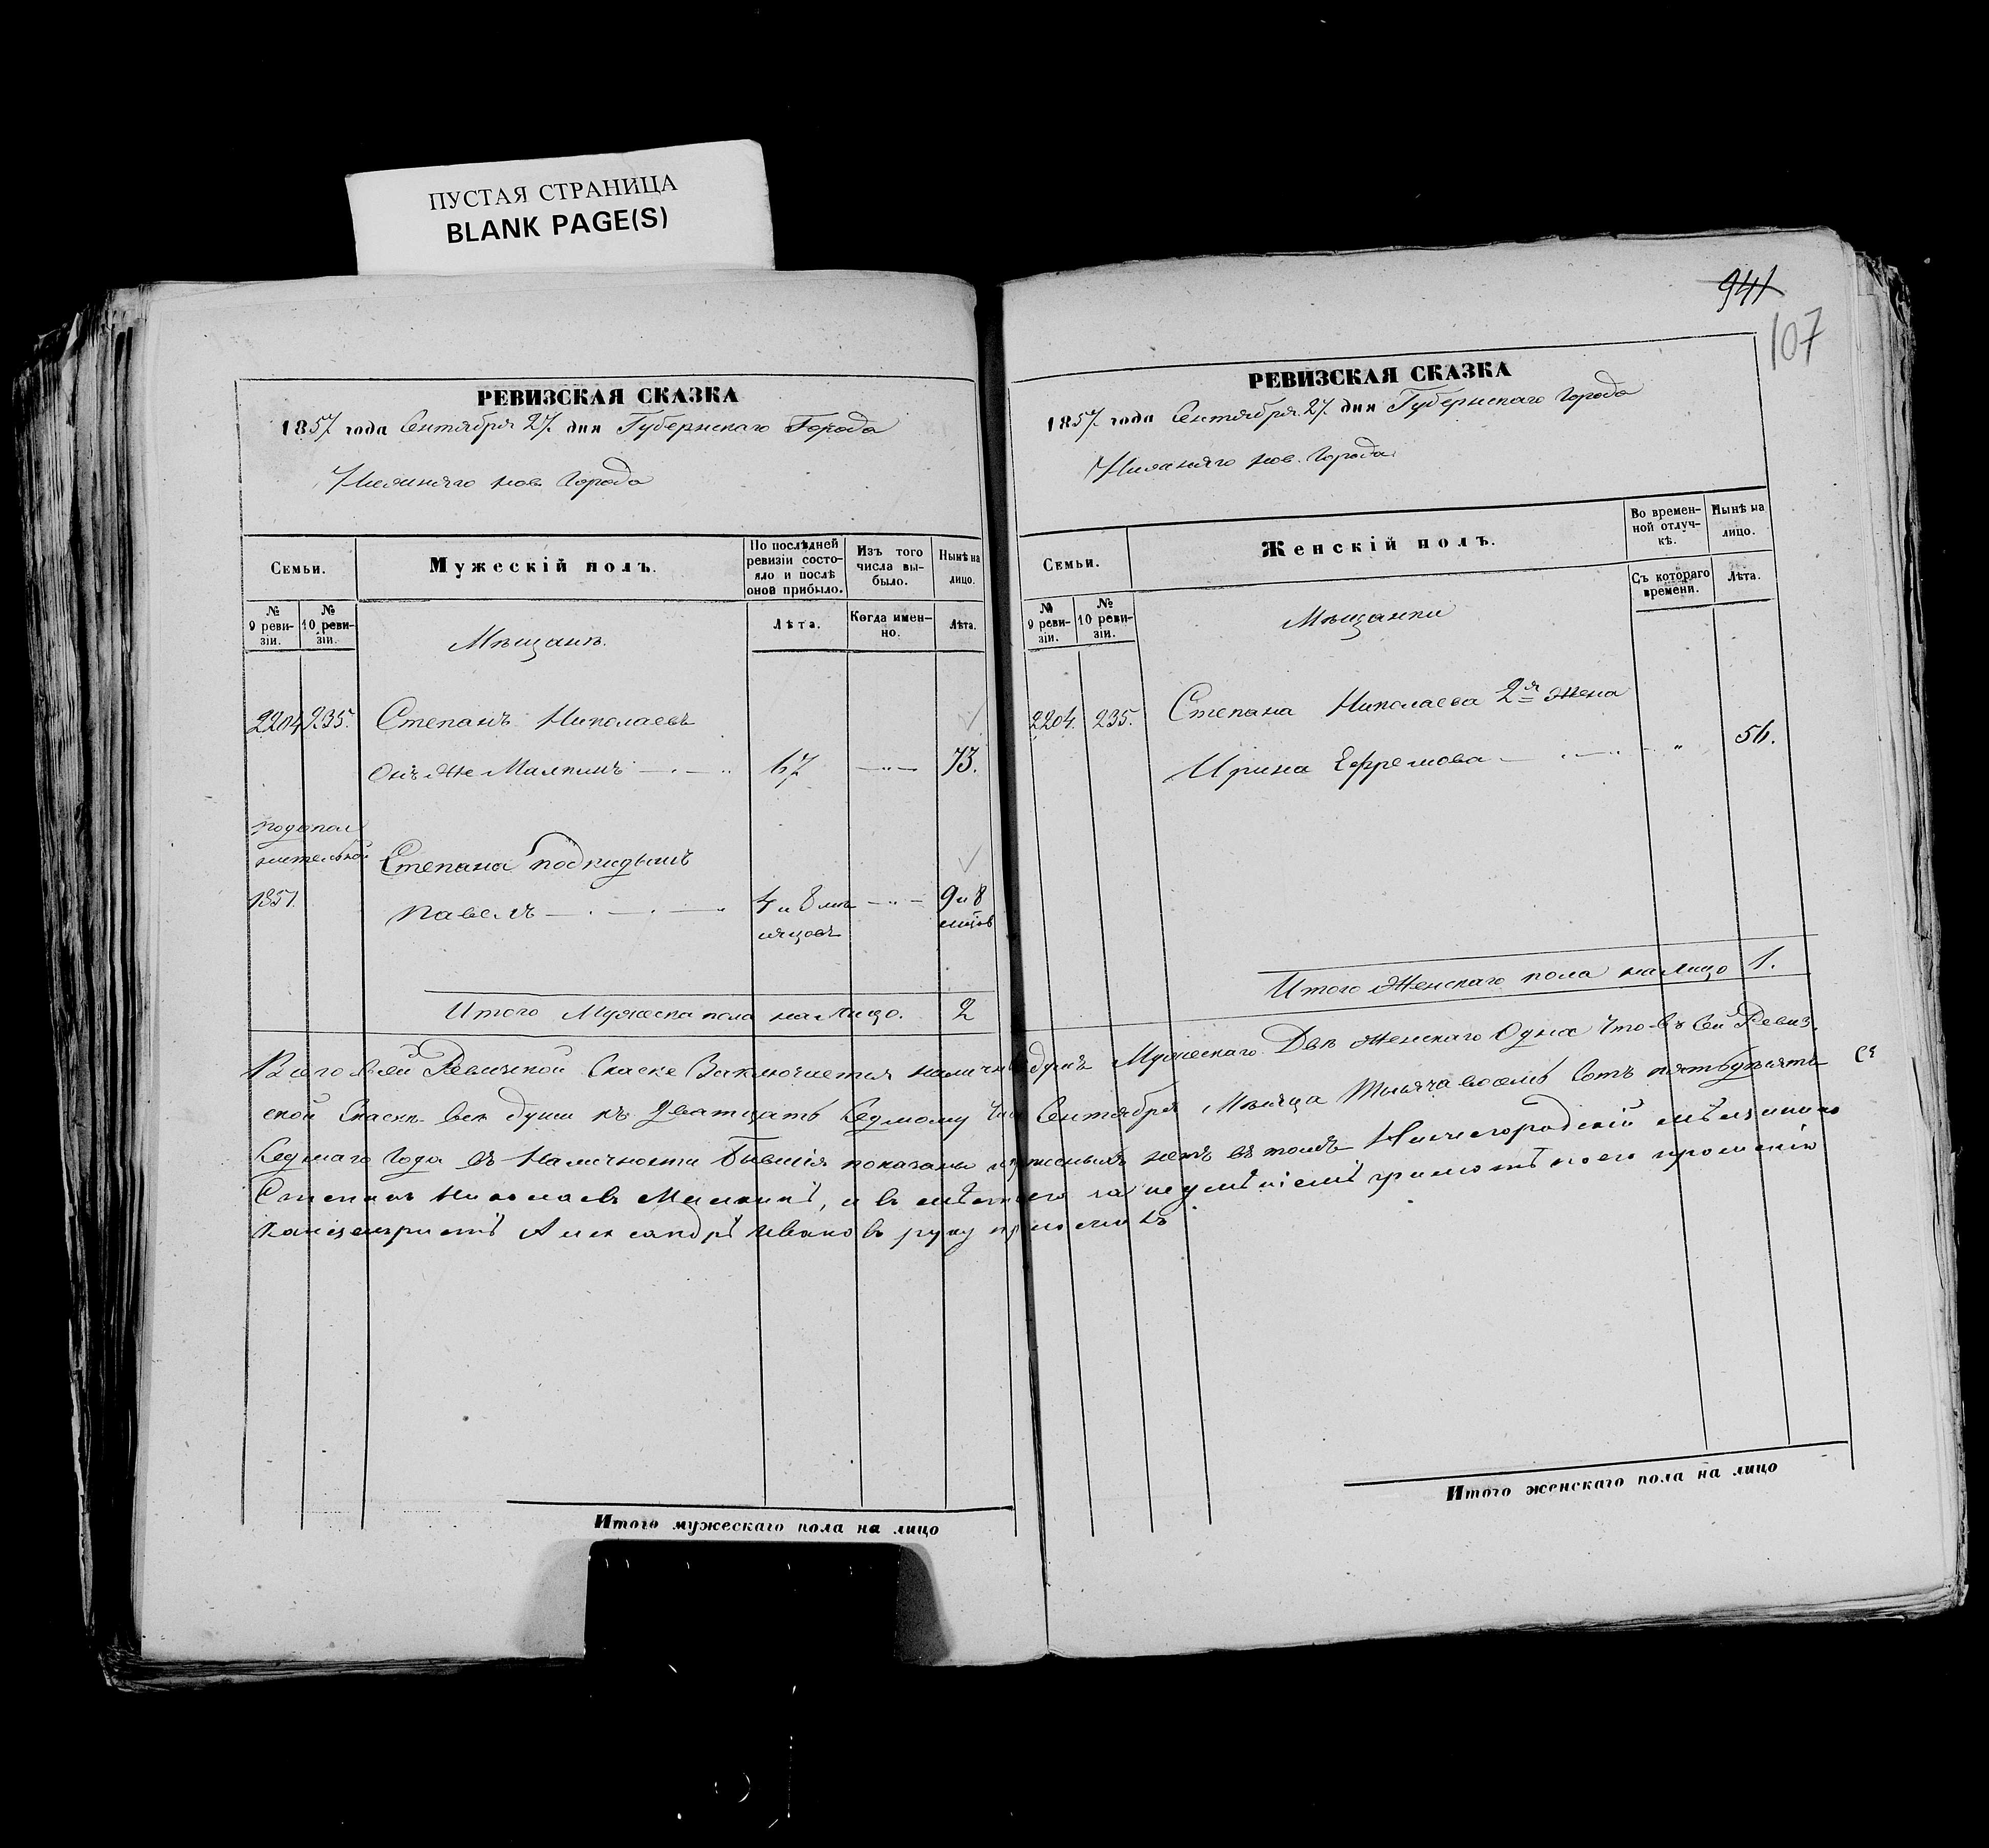 ПУСТАЯ СТРАНИЦА
BLANK PAGE(S)
РЕВИЗСКАЯ СКАЗКА
1857. года Сентября 27. дня Губернскаго Города
Нижняго нов. Города
Семьи.
Мужескій полъ.
По послѣдней ревизіи состояло и послѣ оной прибыло.
Изъ того числа выбыло.
Нынѣ на лицо.
№ 9 ревизіи.
№ 10 ревизіи.
Лѣта.
Когда именно.
Лѣта.
Мѣщанъ.
2204 235. Степанъ Николаевъ
Онъ же Малкинъ 67 73.
подопол
нительной Степана подкидышъ
1851. Павелъ 4 и 8 мѣ 9 и 8
сяцовъ мѣцов
Итого Мужеска пола на Лицо. 2
941
107
РЕВИЗСКАЯ СКАЗКА
1857. года Сентября 27. дня Губернскаго Города
Нижняго нов. Города.
Семьи.
Женскій полъ.
Во временной отлучкѣ.
Нынѣ на лицо.
№ 9 ревизіи.
№ 10 ревизіи.
Съ котораго времени.
Лѣта.
Мѣщанки
2204. 235. Степана Николаева 2я жена
Ирина Ефремова 56.
Итого Женскаго пола на Лицо 1.
Всего в сей Ревизской Сказке Заключается наличныхъ душъ Мужескаго Двѣ Женскаго Одна что въ сей Ревиз
ской Сказкѣ все души къ Дватцать Седмому Чис Сентября Мѣсяца Тысяча восемь Сотъ пятьдесятъ Се
Седмаго Года въ Наличности Бывшія показаны и пропсныхъ нетъ въ томъ Нижегородский мѣщанинъ
Степанъ Николаевъ Малкинъ, а вместо его за неумѣніемъ грамотѣ по его прошенію
Канцеляристъ Александръ Ивановъ руку приложилъ
Итого мужескаго пола на лицо
Итого женскаго пола на лицо